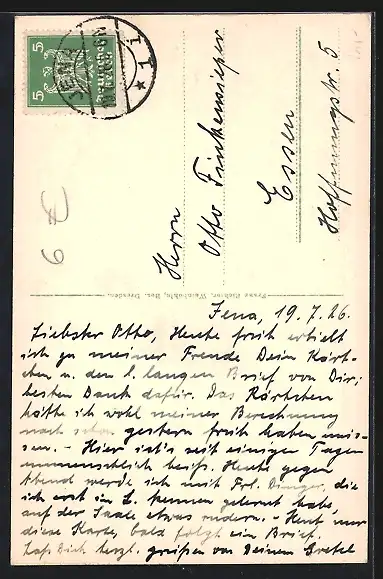 5 5
Herrn
Otto Finkensieper
Essen
Hoffnungstr. 5
Jena, 19.7.26.
Liebster Otto, Heute früh erhielt
ich zu meiner Freude Dein Kärt-
chen u. den l. langen Brief von Dir;
besten Dank dafür. Das Kärtchen
hätte ich wohl meiner Berechnung
nach schon gestern früh haben müs-
sen. – Hier ist's seit einigen Tagen
unmenschlich heiß. Heute gegen
Abend werde ich mit Frl. die
ich erst in L. kennen gelernt habe,
auf der Saale etwas rudern. – Heut nur
diese Karte, bald folgt ein Brief.
Laß Dich herzl. grüßen von Deinem Gretel